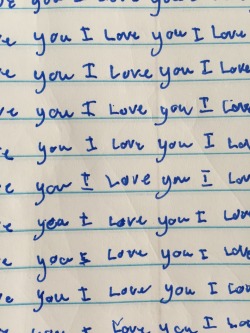 you I Love you I
e you I Love you I Love
e you I Love you I Love
e you I Love you I Love
e you I Love you I Lov
e you I Love you I Love
e you I Love you I Love
e you I Love you I Love
e you I Love you I Love
you I Love you I Lo